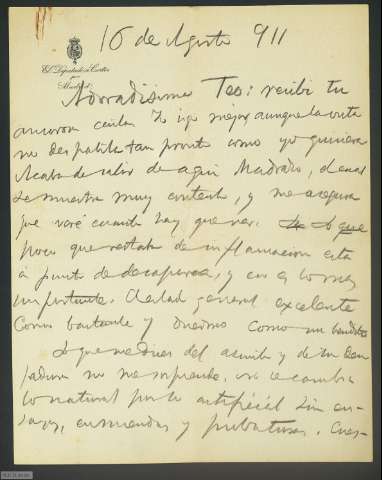 16 de Agosto 911
El Diputado a Cortes
por
Madrid
Adoradísimo Teo: recibi tu
amorosa carta. Yo sigo mejor aunque la vista
no despabila tan pronto como yo quisiera
Acaba de salir de aqui Madrazo, el cual
se muestra muy contento, y me asegura
que veré cuanto hay que ver. Lo
poco que restaba de inflamacion está
á punto de desaparecer, y eso es lo mas
importante. Estado general excelente
Como bastante y duermo como un bendito
Lo que me dices del asunto y de tu
no me sorprende, no se cambia
lo natural por lo artificial sin en-
sayos, enmiendas y probaturas. Cues-